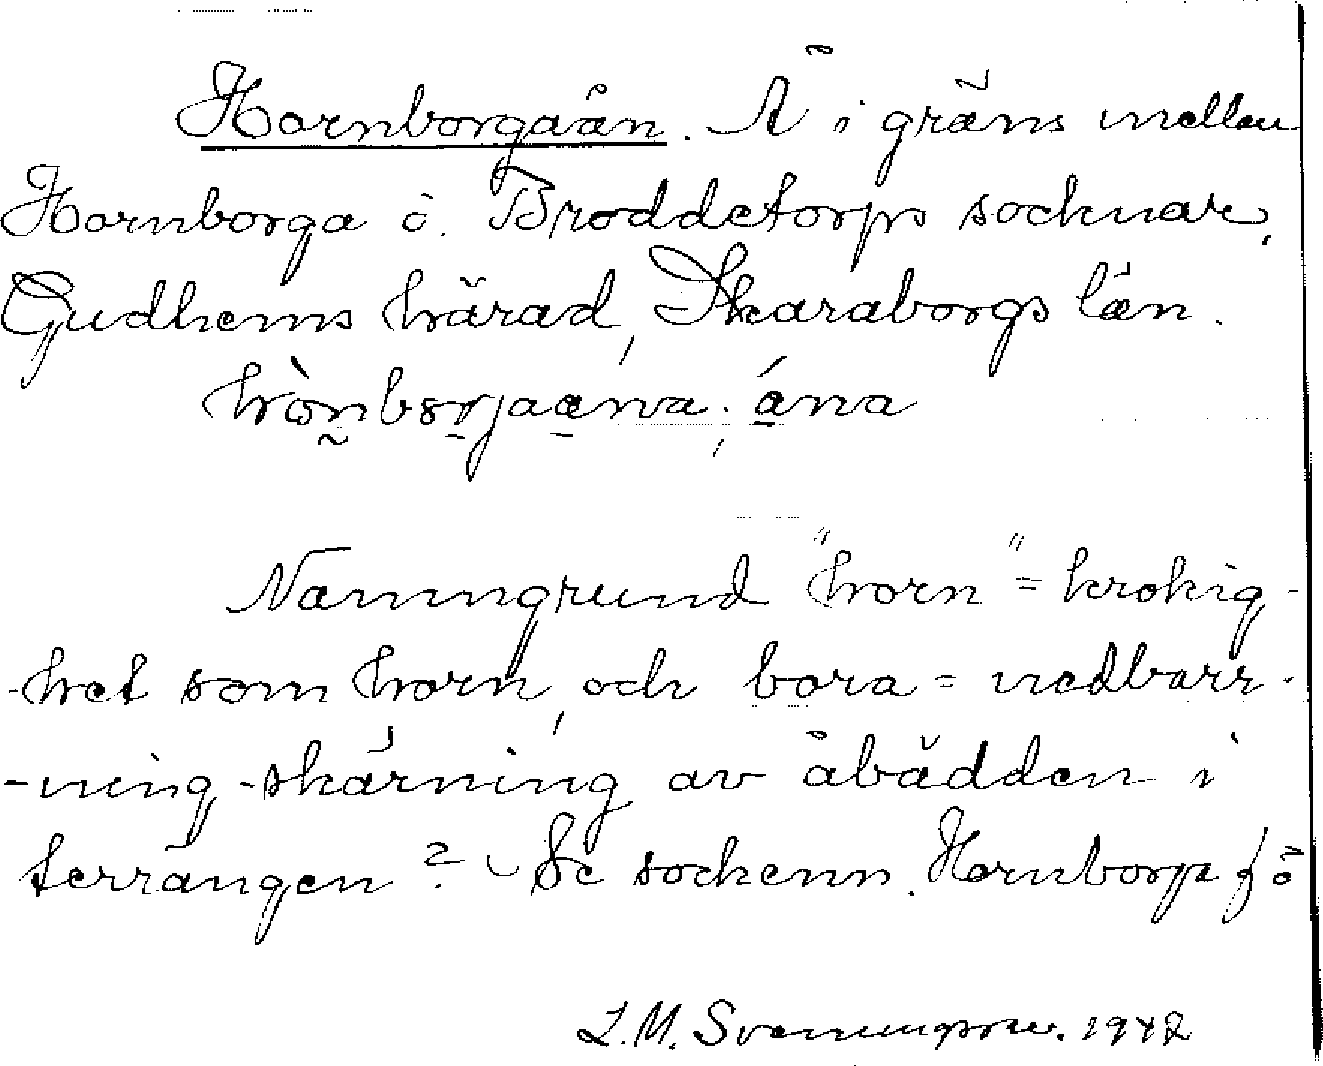 Hornborgaån. Å i gräns mellan
Hornborga o. Broddetorps socknar,
Gudhems härad, Skaraborgs län.
hònborjaána; ána
Namngrund "horn" = krokig-
-het som horn, och bora = nedborr-
-ning-skärning av åbädden i
terrängen? Se sockenn. Hornborga fö
L.M. Svenungsson. 1942